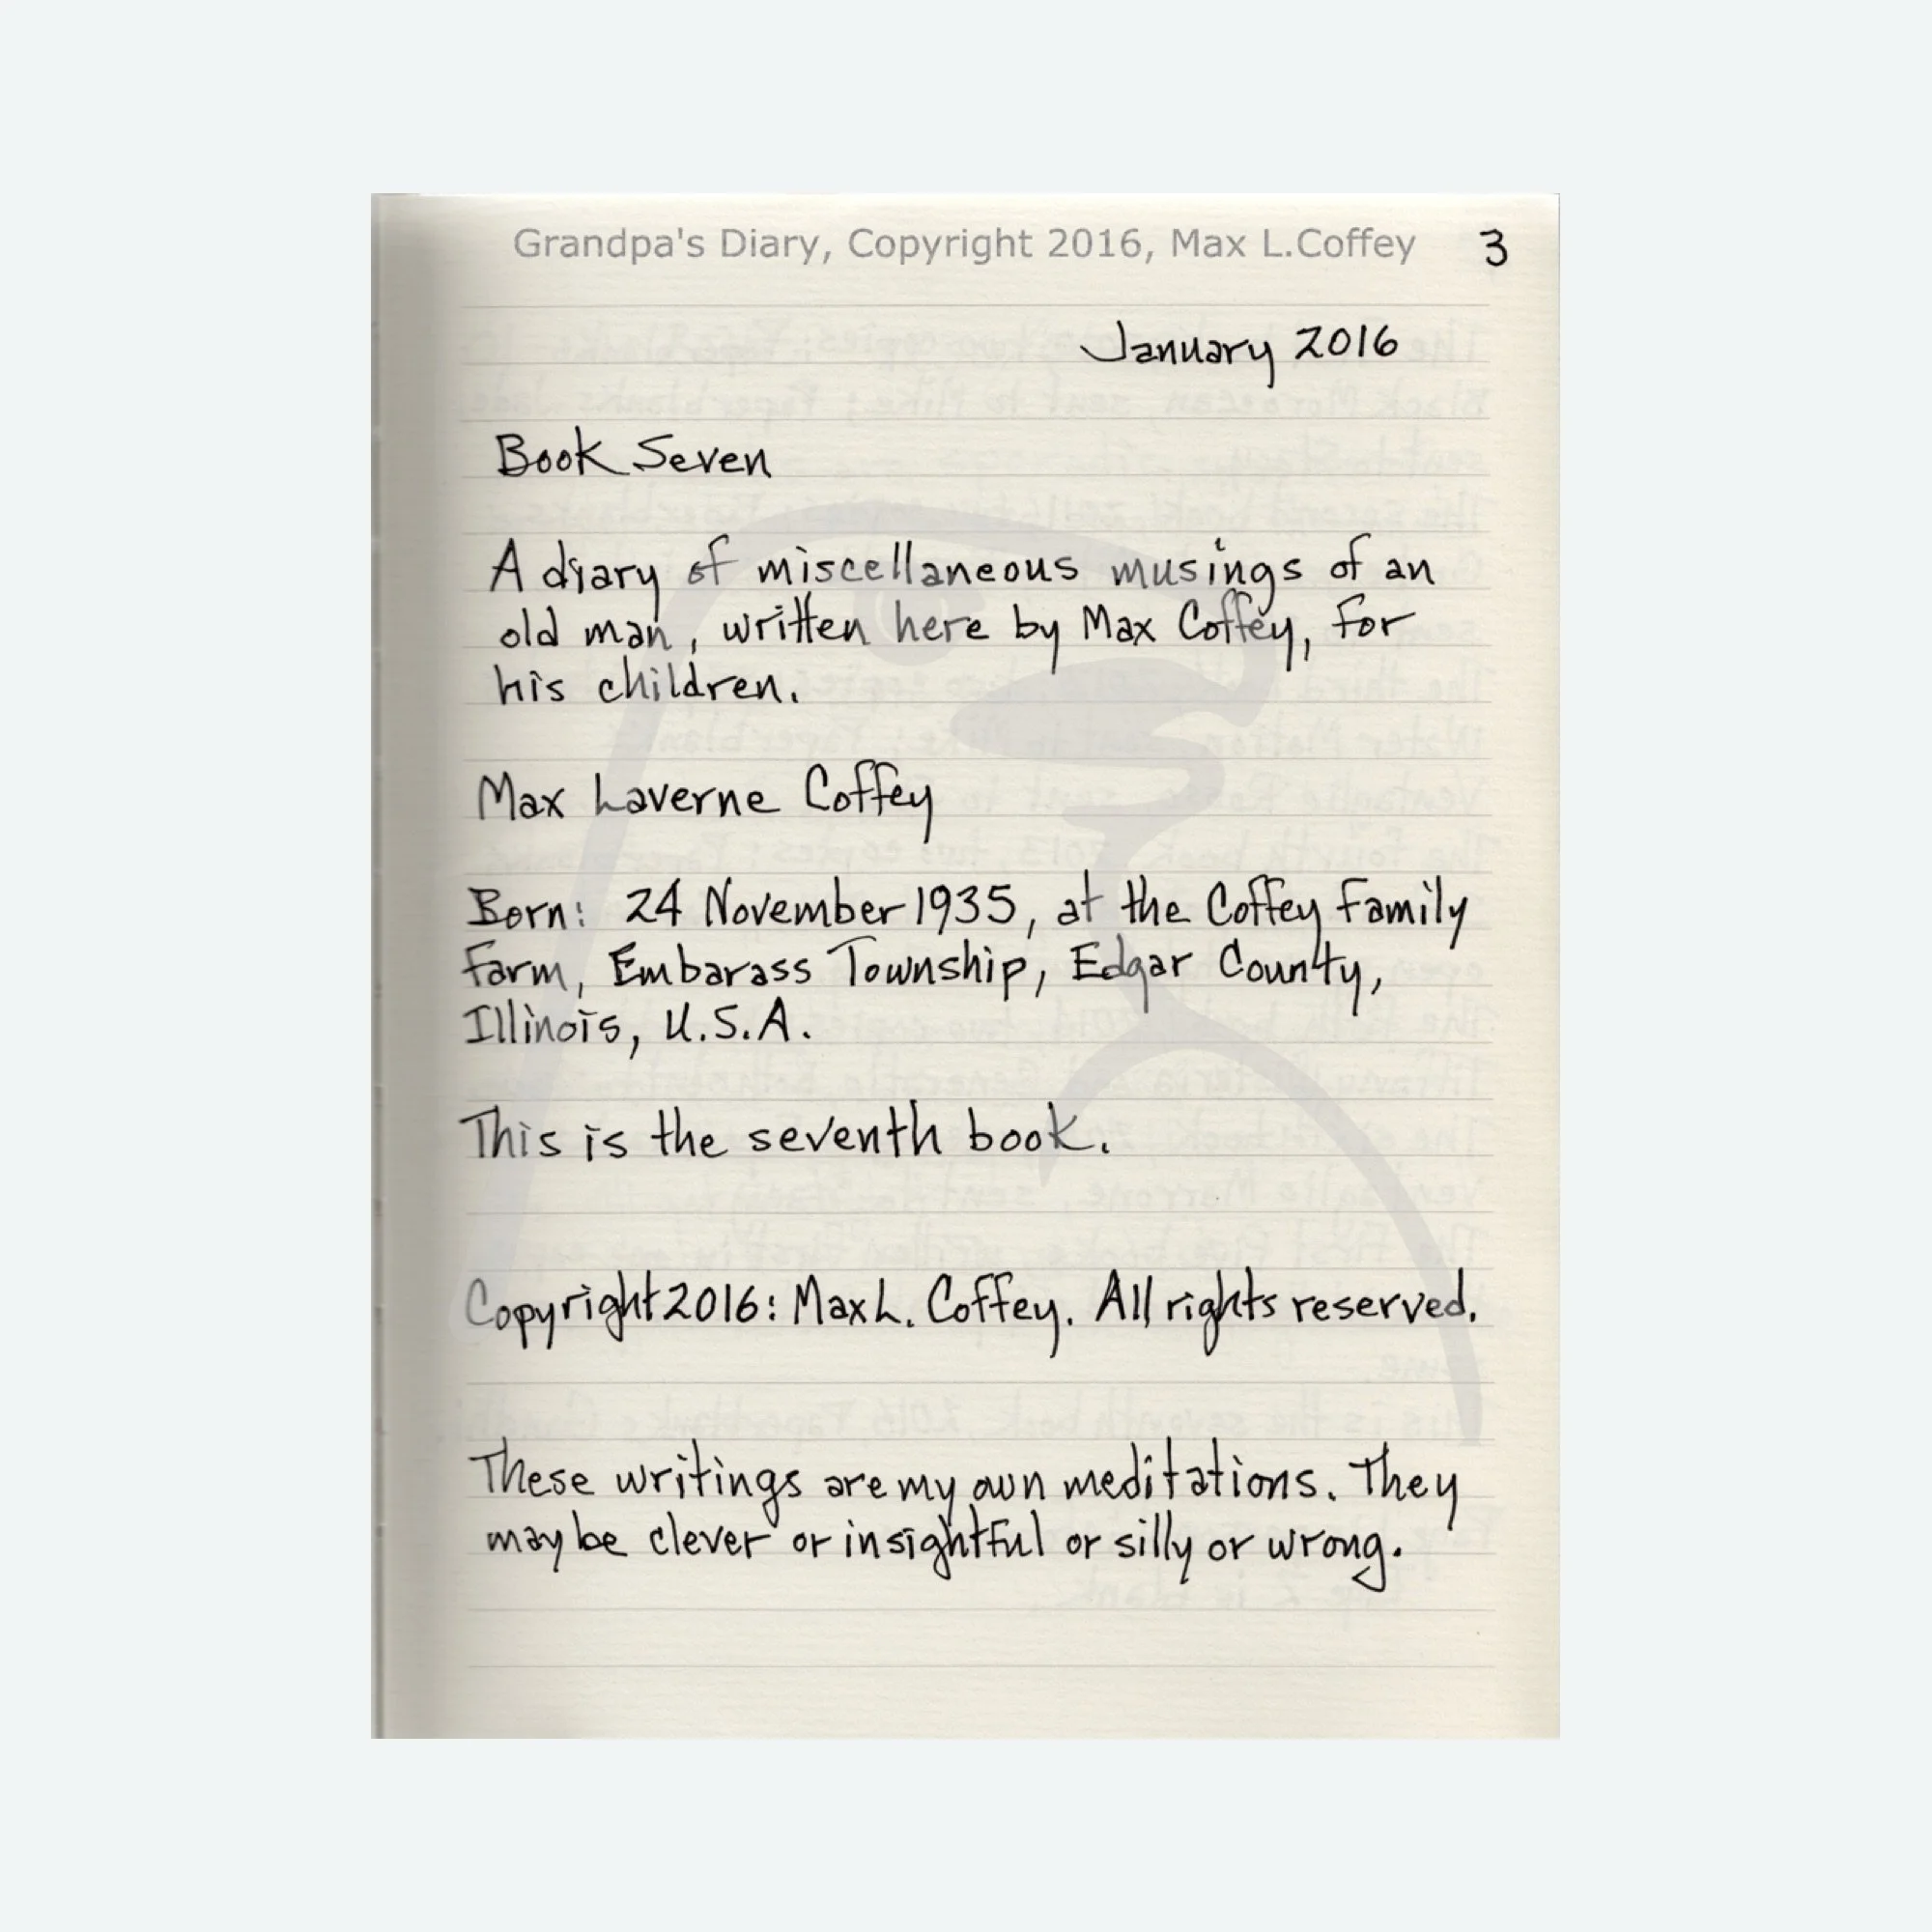 Grandpa's Diary, Copyright 2016, Max L.Coffey 3
January 2016
Book Seven
A diary of miscellaneous musings of an
old man, written here by Max Coffey, for
his children.
Max Laverne Coffey
Born: 24 November 1935, at the Coffey Family
farm, Embarass Township, Edgar County,
Illinois, U.S.A.
This is the seventh book.
Copyright 2016: Max L. Coffey. All rights reserved.
These writings are my own meditations. They
may be clever or insightful or silly or wrong.